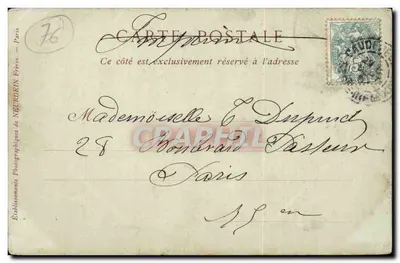 76
CARTE POSTALE
Imprimé
Ce côté est exclusivement réservé à l'adresse
CAUDE
Mademoiselle T. Dupuid
CRAPEFI
28 Boulevard Pasteur
Paris
15 en
Établissements Photographiques de NEURDEIN Frères. — Paris